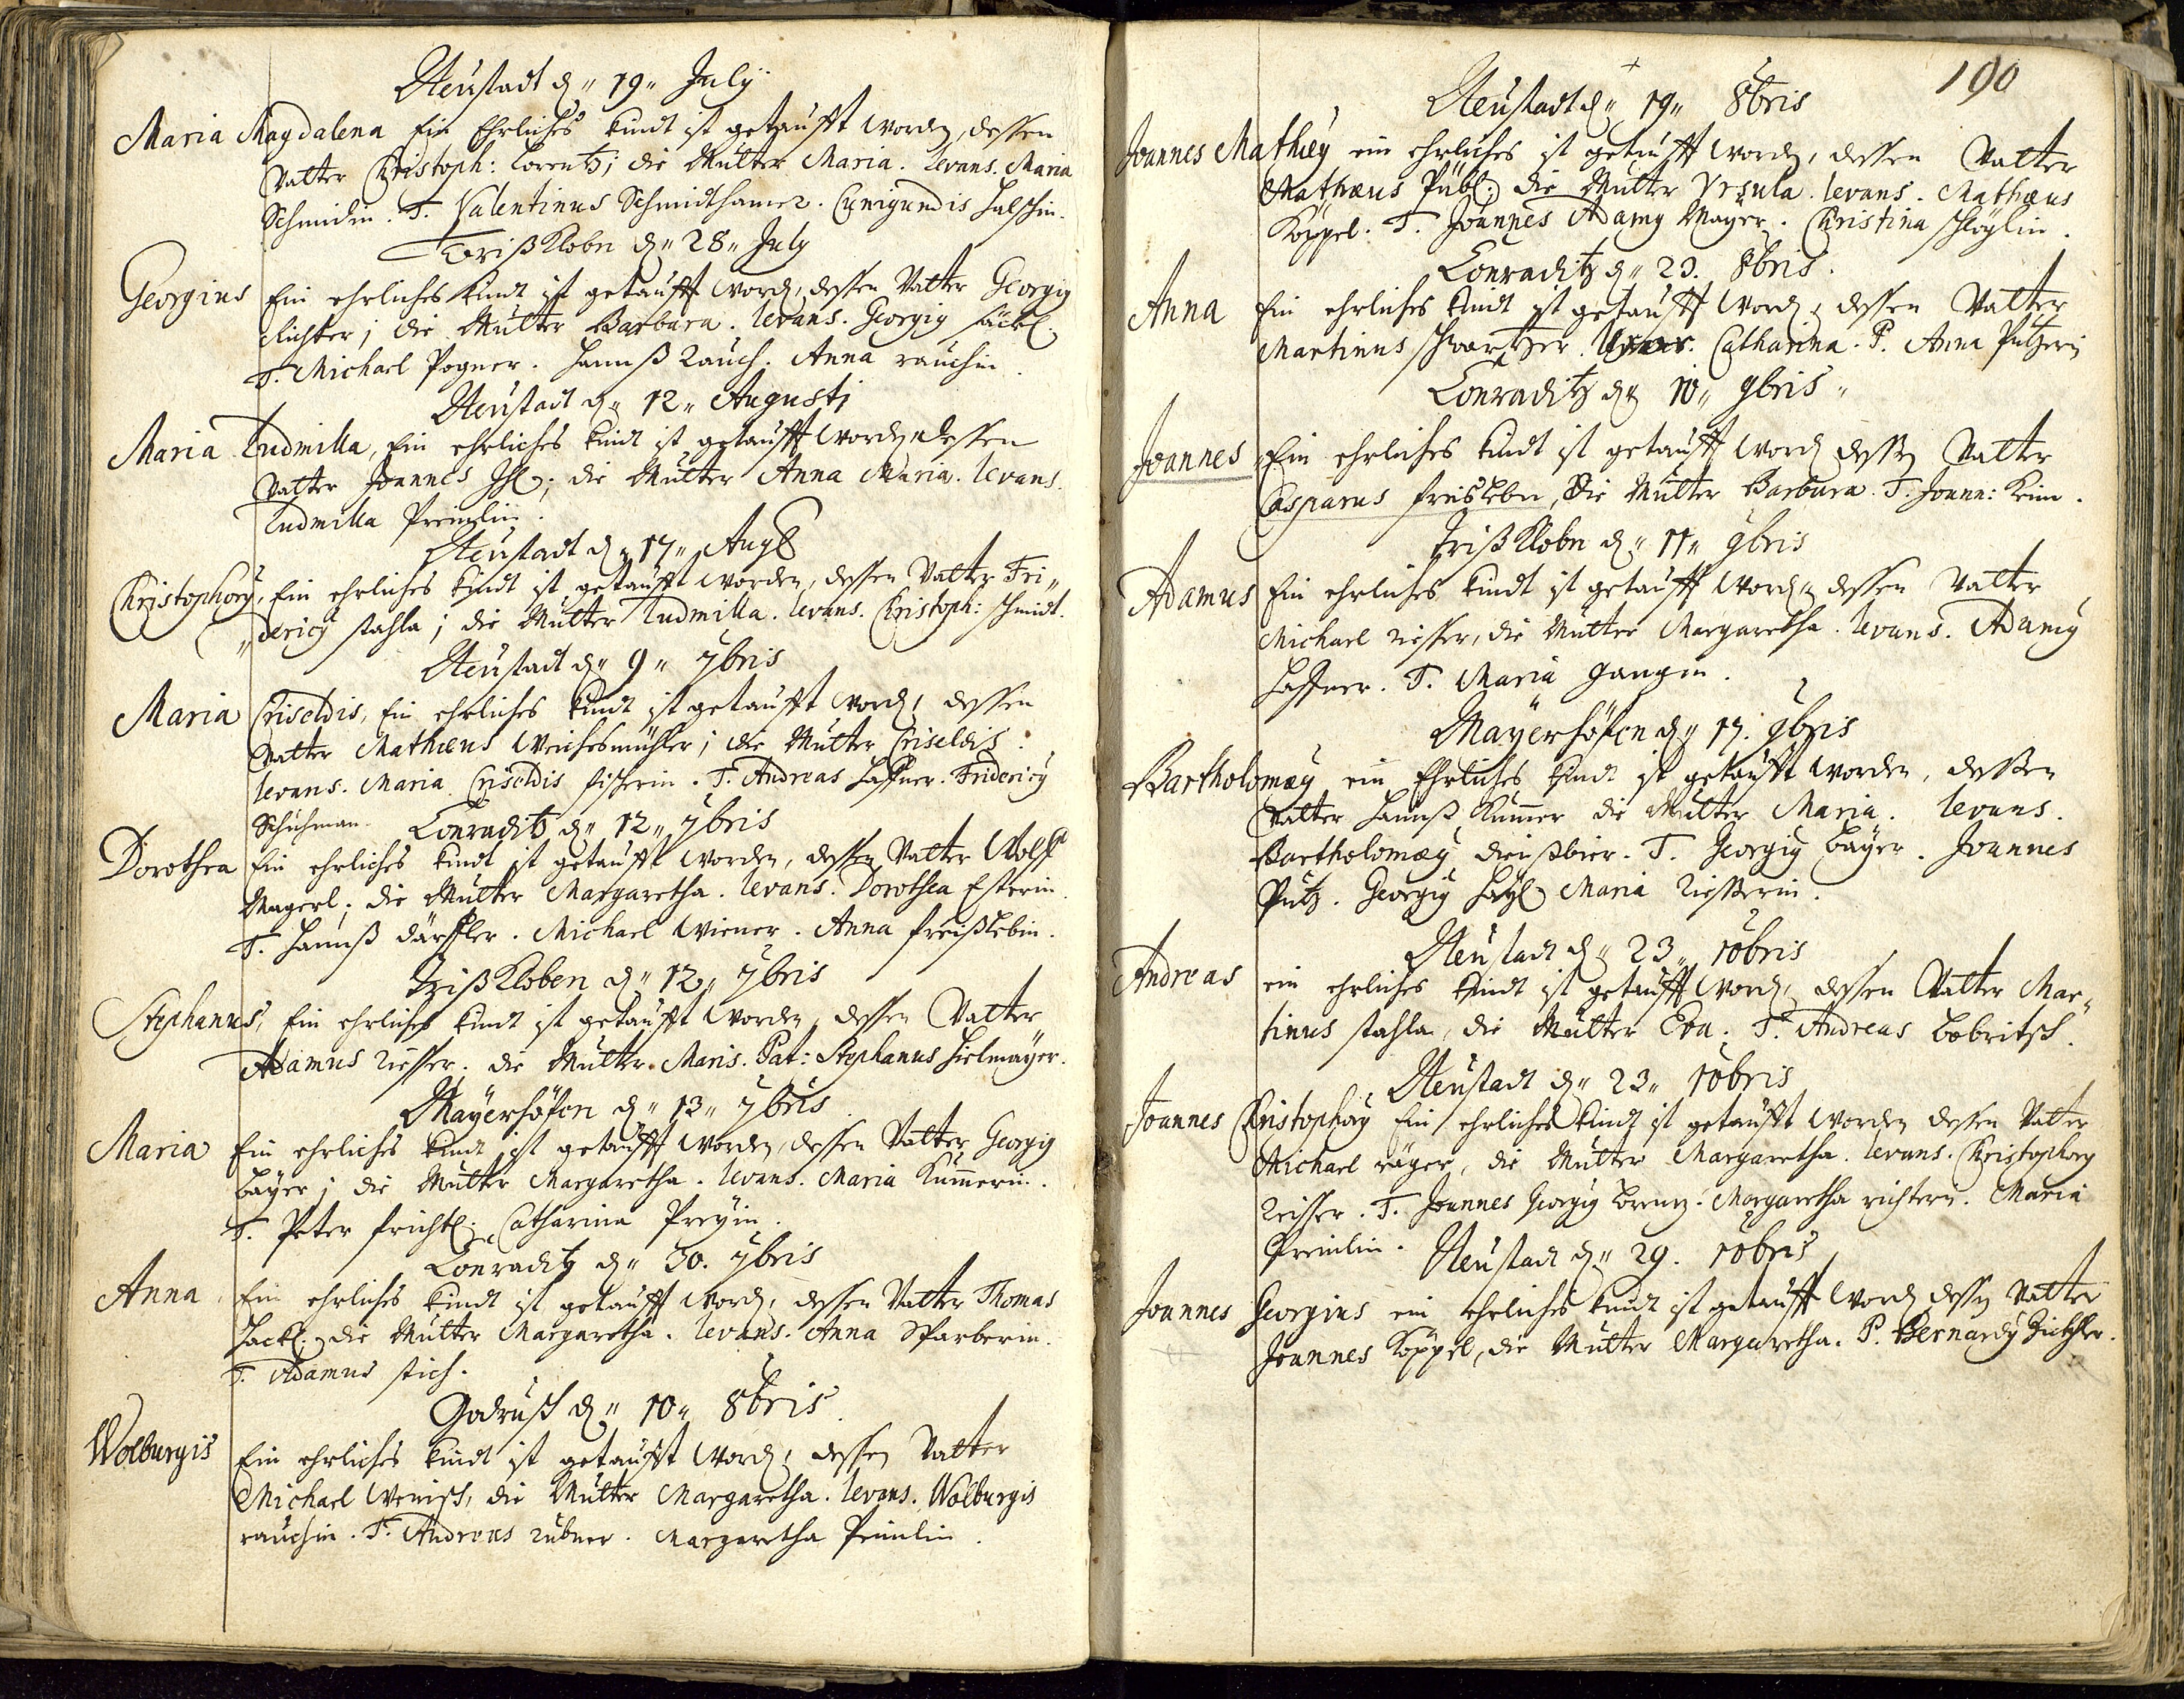 Neustadt d. 19. July
Maria Magdalena Ein Ehrliches kindt ist getaufft worden, dessen
Vatter Christoph: Lorentz; die Mutter Maria. levans. Maria
Schmidin. T. Valentinus Schmidthamer. Cunigundis
Trißklobn d. 28. July
Georgius Ein ehrliches kindt ist getaufft word., dessen Vatter Georgig
Richter; die Mutter Barbara. levans. Georgig
T. Michael Pogner. Hannß Rauch. Anna rauchin.
Neustadt d. 12. Augusti
Maria Ludmilla, Ein ehrliches kindt ist getaufft worden, dessen
Vatter Joannes; die Mutter Anna Maria. levans.
Ludmilla Preimlin.
Neustadt d. 17. Aug
Christophorÿ, Ein ehrliches kindt ist getaufft worden, dessen Vatter Fri„
„dericÿ stahla; die Mutter Ludmilla. levans. Christoph: schmidt.
Neustadt d. 9. 7bris
Maria Criseldis, Ein ehrliches kindt ist getaufft word., dessen
Vatter Mathæus Weichesmühler; die Mutter Criseldis.
levans. Maria Criseldis fischerin. T. Andreas Haffner. Fridericÿ
Schuhman.
Conraditz d. 12. 7bris
Dorothea Ein ehrliches kindt ist getaufft worden, dessen Vatter Wolff
Magerl; die Mutter Margaretha. levans. Dorothea Esterin.
T. Hannß därffler. Michael Wiener. Anna freißlebin.
Trißkloben d. 12. 7bris
Stephanus, Ein ehrliches kindt ist getaufft worden, dessen Vatter
Adamus Riesser. die Mutter Maris. Pat: Stephanus Hielmaÿer.
Maÿerhöfen d. 13. 7bris
Maria Ein ehrliches kindt ist getaufft worden, dessen Vatter Georgig
baÿer; die Mutter Margaretha. levans. Maria Kumerin.
T. Peter frichtl. Catharina Preyin.
Conraditz d. 30. 7bris
Anna, Ein ehrliches kindt ist getaufft word., dessen Vatter Thomas
Jackl. die Mutter Margaretha. levans. Anna Sparberin.
T. Adamus stich.
Godrusch d. 10. 8bris.
Wolburgis Ein ehrliches kindt ist getaufft word., dessen Vatter
Michael Wenisch, die Mutter Margaretha. levans. Wolburgis
rauchin. T. Andreas rubner. Margaretha Preimlin.
190
Neustadt d. 19. 8bris
Joannes Mathiey ein ehrliches ist getaufft worden, dessen Vatter
Mathæus Pübl. die Mutter Ursula. levans. Mathæus
Köppel. T. Joannes Adamy Mayer. Christina schlöglin.
Conraditz d. 23. 8bris.
Anna Ein ehrliches kindt ist getaufft word., dessen Vatter
Martinus schwartzer. Catharina. P. Anna Putzerin
Conraditz d. 10. 9bris.
Joannes Ein ehrliches kindt ist getaufft word dessen Vatter
Casparus freislebn, Die Mutter Barbara. T. Joann: keim.
Trißklobn d. 11. 9bris
Adamus Ein ehrliches kindt ist getaufft word., dessen Vatter
Michael riesser, die Mutter Margaretha. levans. Adamÿ
Haffner. T. Maria Gangin.
Maÿerhöfen d. 17. 9bris
Bartholomæÿ ein Ehrliches kindt ist getaufft worden, dessen
Vatter Hannß Kumer die Mutter Maria. levans.
Bartholomæÿ dreißbier. T. Georgig baÿer. Joannes
Putz. Georgig Maria Riesserin.
Neustadt d. 23. 10bris
Andreas ein ehrliches kindt ist getaufft word., dessen Vatter Mar„
tinus stahla, die Mutter Eva. T. Andreas bobritsch.
Neustadt d. 23. 10bris
Joannes Christophorÿ Ein ehrliches kindt ist getaufft worden dessen Vatter
Michael räger, die Mutter Margaretha. levans. Christophorÿ
Reisser. T. Joannes Georgig Lorenz. Margaretha richterin. Maria
Preimlin.
Neustadt d. 29. 10bris
Joannes Georgius ein ehrliches kindt ist getaufft word. dessen Vatter
Joannes Köppel, die Mutter Margaretha. P. Bernardÿ